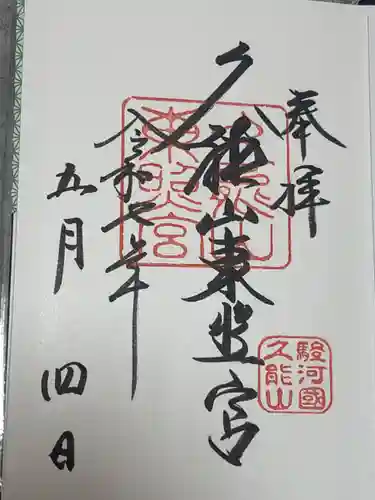 奉拝
久能山東照宮
令和七年
五月四日
久能山東照宮
駿河國
久能山